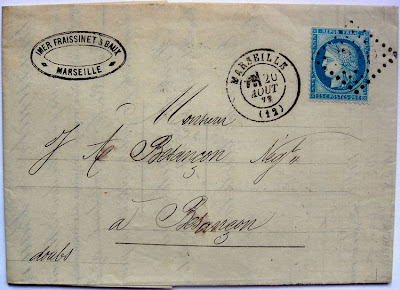 IMER FRAISSINET & BAUX
MARSEILLE
MARSEILLE
20
AOUT
(12)
REPUB. FRANC.
25 C. POSTES 25 C.
Monsieur
Besançon Négt
à Besançon
doubs